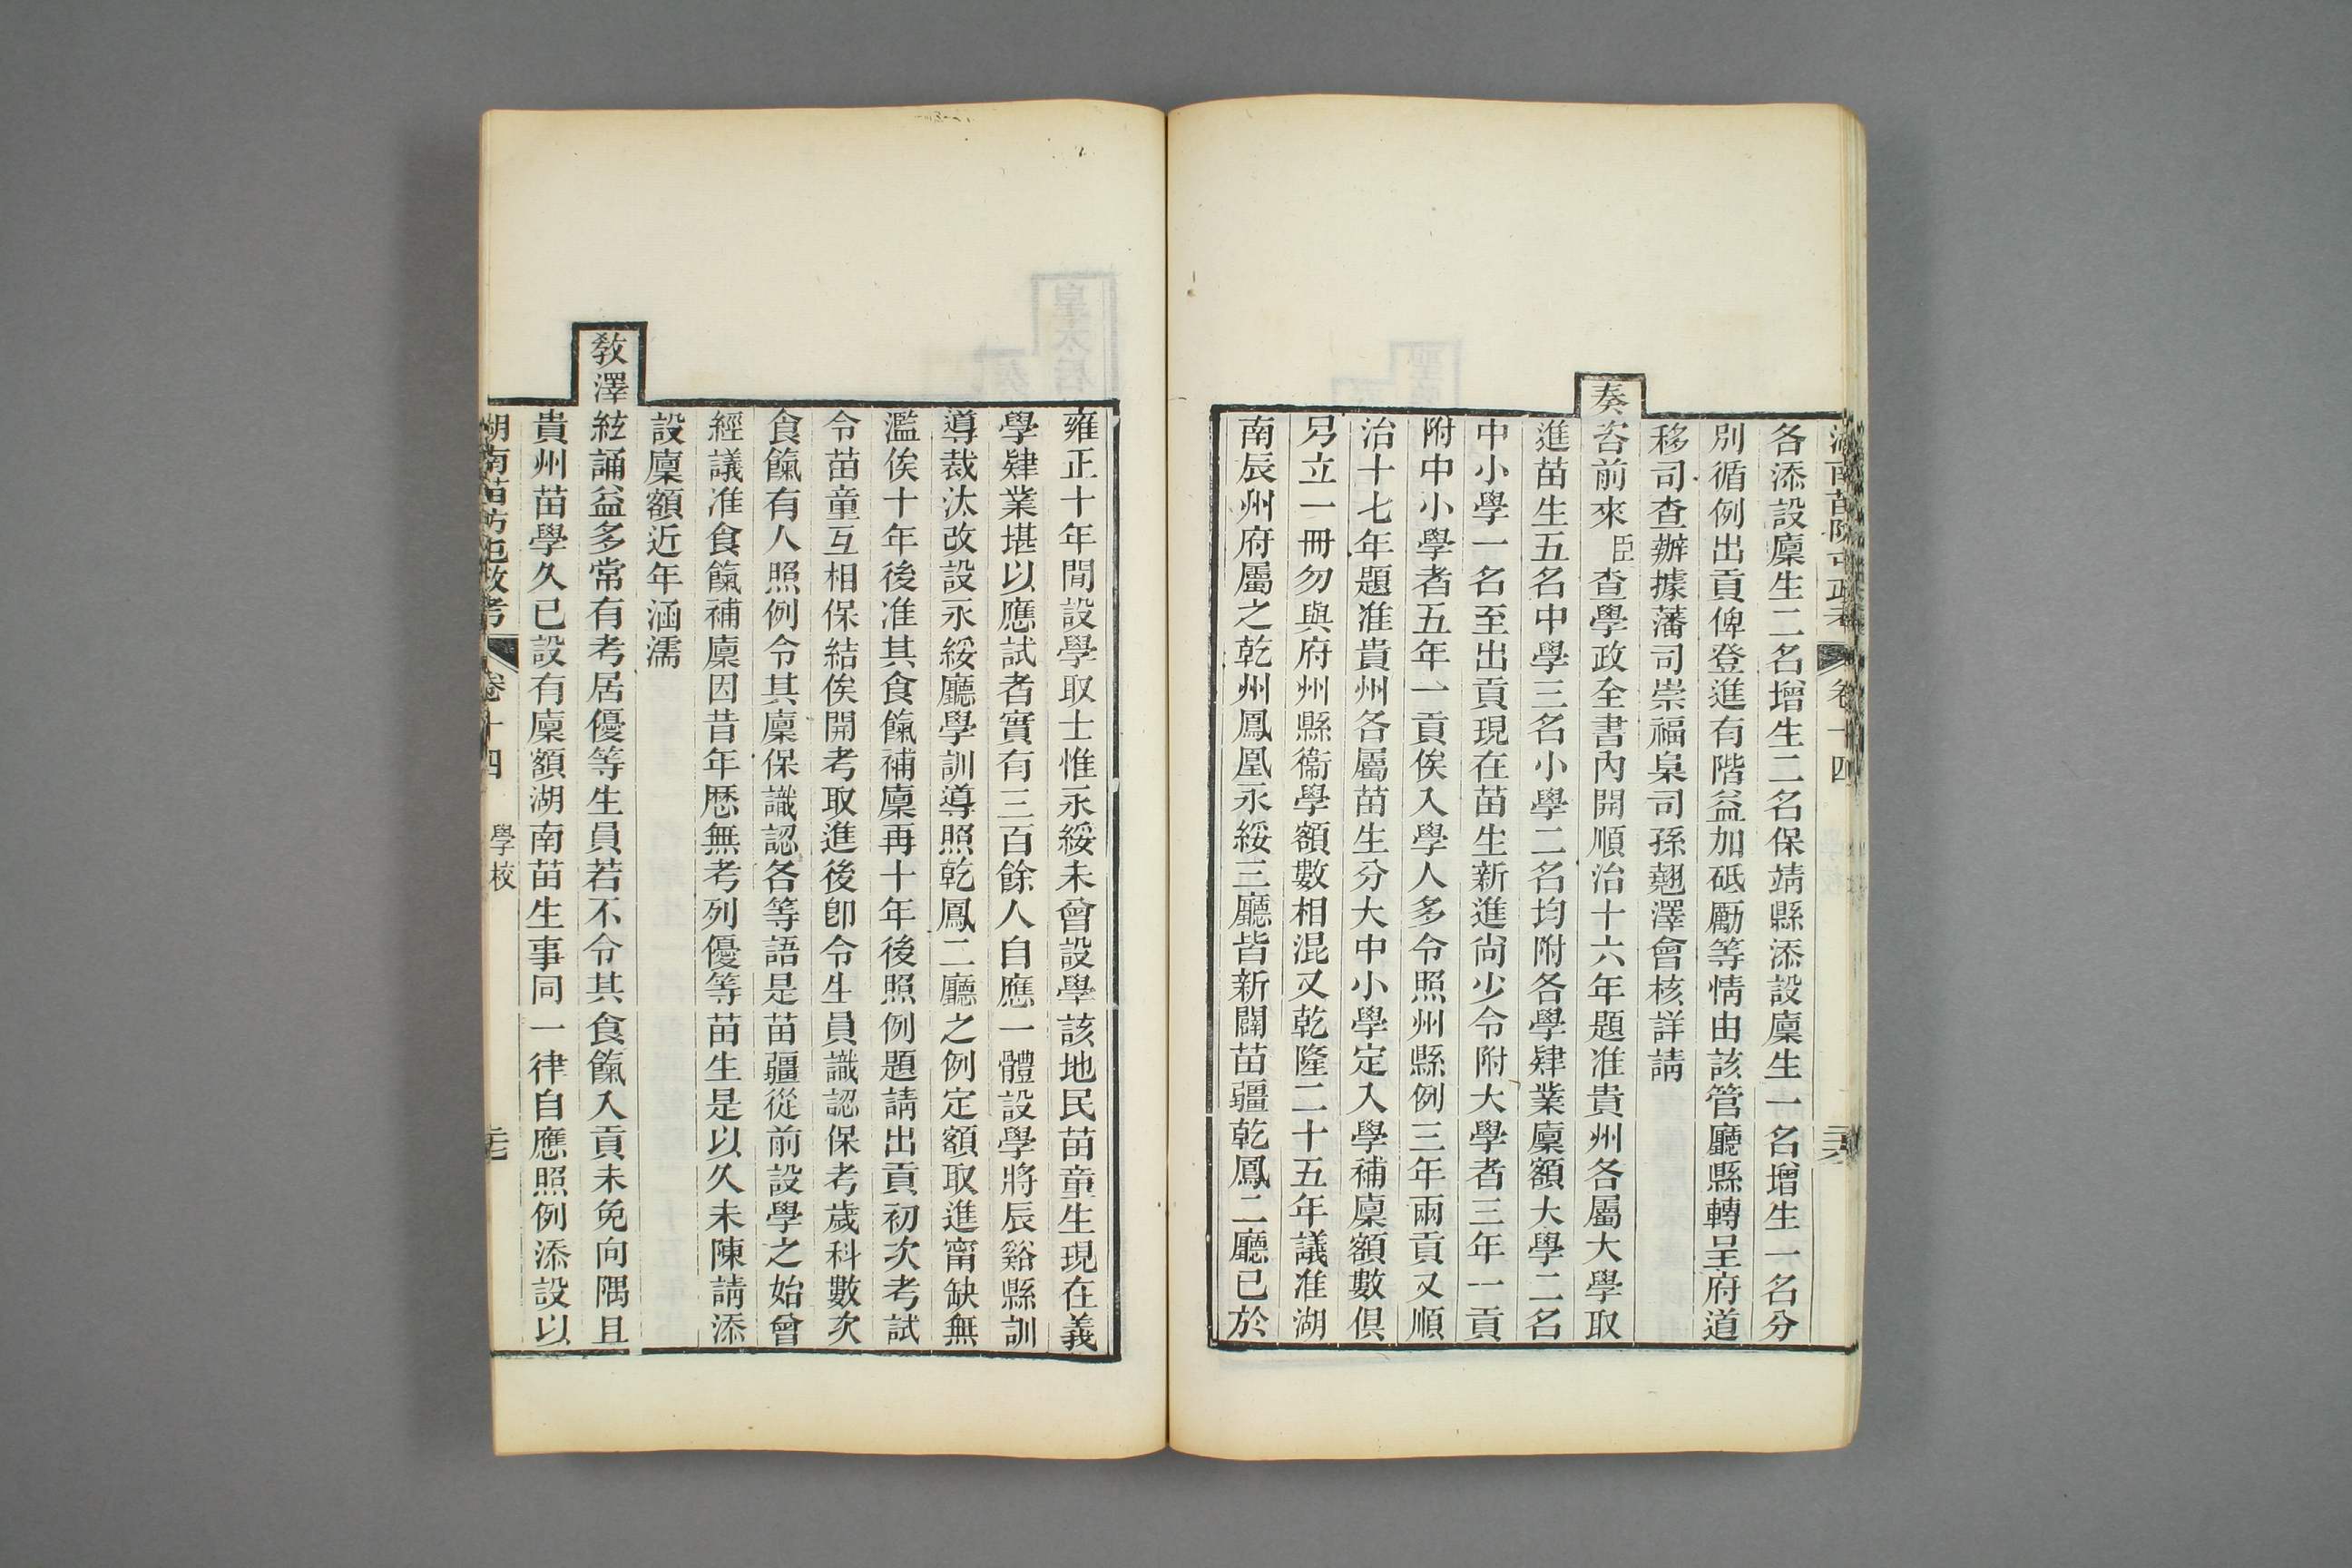 湖南苗防屯政考 卷十四 二六
各添設廩生二名增生二名保靖縣添設廩生一名增生一名分
別循例出貢俾登進有階益加砥勵等情由該管廳縣轉呈府道
移司查辦據藩司崇福臬司孫翹澤會核詳請
奏咨前來臣查學政全書內開順治十六年題准貴州各屬大學取
進苗生五名中學三名小學二名均附各學肄業廩額大學二名
中小學一名至出貢現在苗生新進尚少令附大學者三年一貢
附中小學者五年一貢俟入學人多令照州縣例三年兩貢又順
治十七年題准貴州各屬苗生分大中小學定入學補廩額數俱
另立一冊勿與府州縣衞學額數相混又乾隆二十五年議准湖
南辰州府屬之乾州鳳凰永綏三廳皆新闢苗疆乾鳳二廳已於
雍正十年閒設學取士惟永綏未曾設學該地民苗童生現在義
學肄業堪以應試者實有三百餘人自應一體設學將辰谿縣訓
導裁汰改設永綏廳學訓導照乾鳳二廳之例定額取進甯缺無
濫俟十年後准其食餼補廩再十年後照例題請出貢初次考試
令苗童互相保結俟開考取進後卽令生員識認保考歲科數次
食餼有人照例令其廩保識認各等語是苗疆從前設學之始曾
經議准食餼補廩因昔年歷無考列優等苗生是以久未陳請添
設廩額近年涵濡
敎澤絃誦益多常有考居優等生員若不令其食餼入貢未免向隅且
貴州苗學久已設有廩額湖南苗生事同一律自應照例添設以
湖南苗防屯政考 卷十四 學校 二七